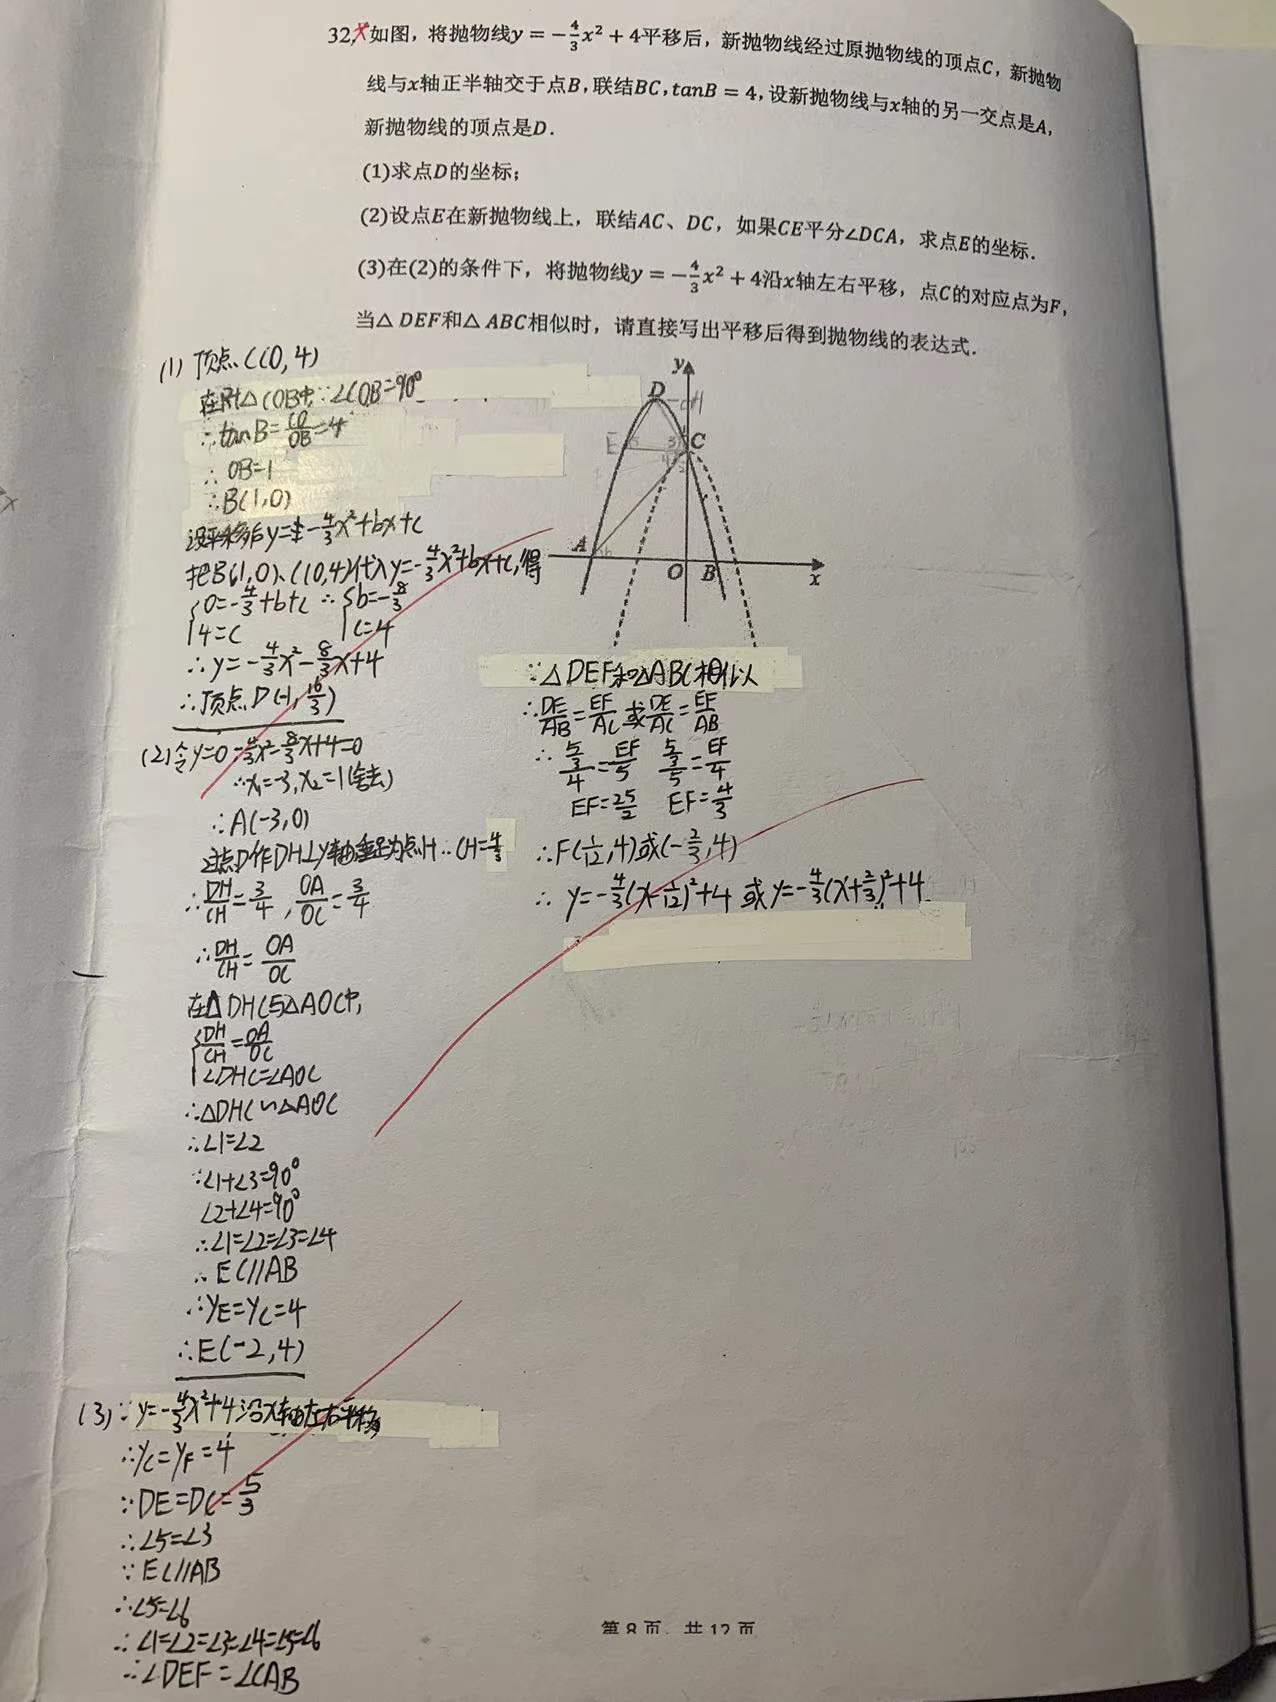 32. 如图，将抛物线y = -4/3x² + 4平移后，新抛物线经过原抛物线的顶点C，新抛物
线与x轴正半轴交于点B，联结BC，tanB = 4，设新抛物线与x轴的另一交点是A，
新抛物线的顶点是D.
(1)求点D的坐标；
(2)设点E在新抛物线上，联结AC、DC，如果CE平分∠DCA，求点E的坐标.
(3)在(2)的条件下，将抛物线y = -4/3x² + 4沿x轴左右平移，点C的对应点为F，
当△DEF和△ABC相似时，请直接写出平移后得到抛物线的表达式.
y
D
H
E
C
A
O
B
x
(1) 顶点C(0,4)
在Rt△COB中∵∠COB=90°
∴tanB=CO/OB=4
∴OB=1
∴B(1,0)
设平移后y=-4/3x²+bx+c
把B(1,0)、C(0,4)代入y=-4/3x²+bx+c,得
{0=-4/3+b+c ∴{b=-8/3
4=c c=4
∴y=-4/3x²-8/3x+4
∴顶点D(-1,16/3)
(2)令y=0 -4/3x²-8/3x+4=0
∴x₁=-3,x₂=1(舍去)
∴A(-3,0)
过点D作DH⊥y轴垂足为点H∴CH=4/3
∴DH/CH=3/4,OA/OC=3/4
∴DH/CH=OA/OC
在△DHC与△AOC中,
{DH/CH=OA/OC
∠DHC=∠AOC
∴△DHC∽△AOC
∴∠1=∠2
∵∠1+∠3=90°
∠2+∠4=90°
∴∠1=∠2=∠3=∠4
∴EC//AB
∴yE=yC=4
∴E(-2,4)
(3)∵y=-4/3x²+4沿x轴左右平移
∴yC=yF=4
∵DE=DC=5/3
∴∠5=∠3
∵EC//AB
∴∠5=∠6
∴∠1=∠2=∠3=∠4=∠5=∠6
∴∠DEF=∠CAB
∵△DEF和△ABC相似
∴DE/AB=EF/AC或DE/AC=EF/AB
∴5/3/4=EF/5 5/3/5=EF/4
EF=25/2 EF=4/3
∴F(1/12,4)或(-2/3,4)
∴y=-4/3(x-1/12)²+4或y=-4/3(x+2/3)²+4
第8页，共12页